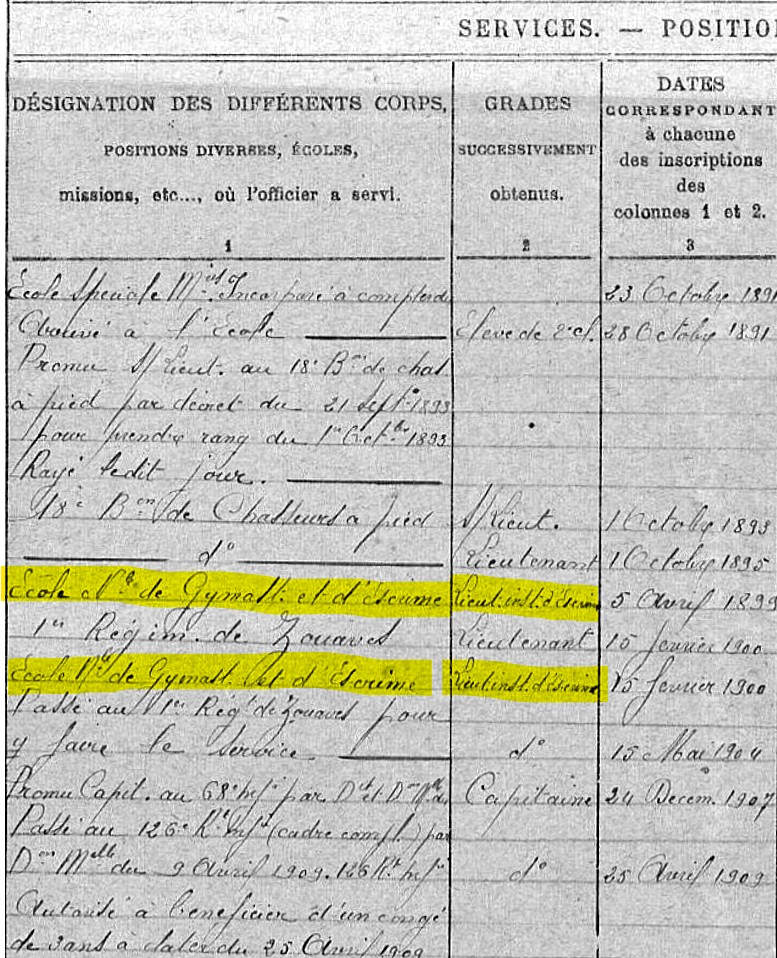 SERVICES. — POSITIO
DÉSIGNATION DES DIFFÉRENTS CORPS,
POSITIONS DIVERSES, ÉCOLES,
missions, etc..., où l'officier a servi.
1
GRADES
SUCCESSIVEMENT
obtenus.
2
DATES
CORRESPONDANT
à chacune
des inscriptions
des
colonnes 1 et 2.
3
École Spéciale Mre. Incorporé à compter du 23 Octobre 1891
Arrivé à l'École Élève de 2e cl. 28 Octobre 1891
Promu S/Lieut. au 18e Bon de chas.
à pied par décret du 21 Sept. 1893
pour prendre rang du 1er Oct.bre 1893
Rayé ledit jour.
18e Bon de Chasseurs à pied S/Lieut. 1 Octobre 1893
do Lieutenant 1 Octobre 1895
École Nle de Gymast. et d'Escrime Lieut. inst. d'Escrime 5 Avril 1899
1er Régim. de Zouaves Lieutenant 15 février 1900
École Nle de Gymast. et d'Escrime Lieut. inst. d'Escrime 15 février 1900
Passé au 1er Régt de Zouaves pour
y faire le service do 15 Mai 1904
Promu Capit. au 68e Inf. par Dt et Don Capitaine 24 Décem. 1907
Passé au 126e Rt Infie (cadre compl.) par
Don Mlle du 9 Avril 1909. 126 Rt Infie do 25 Avril 1909
Autorisé à bénéficier d'un congé
de 3 ans à dater du 25 Avril 1909